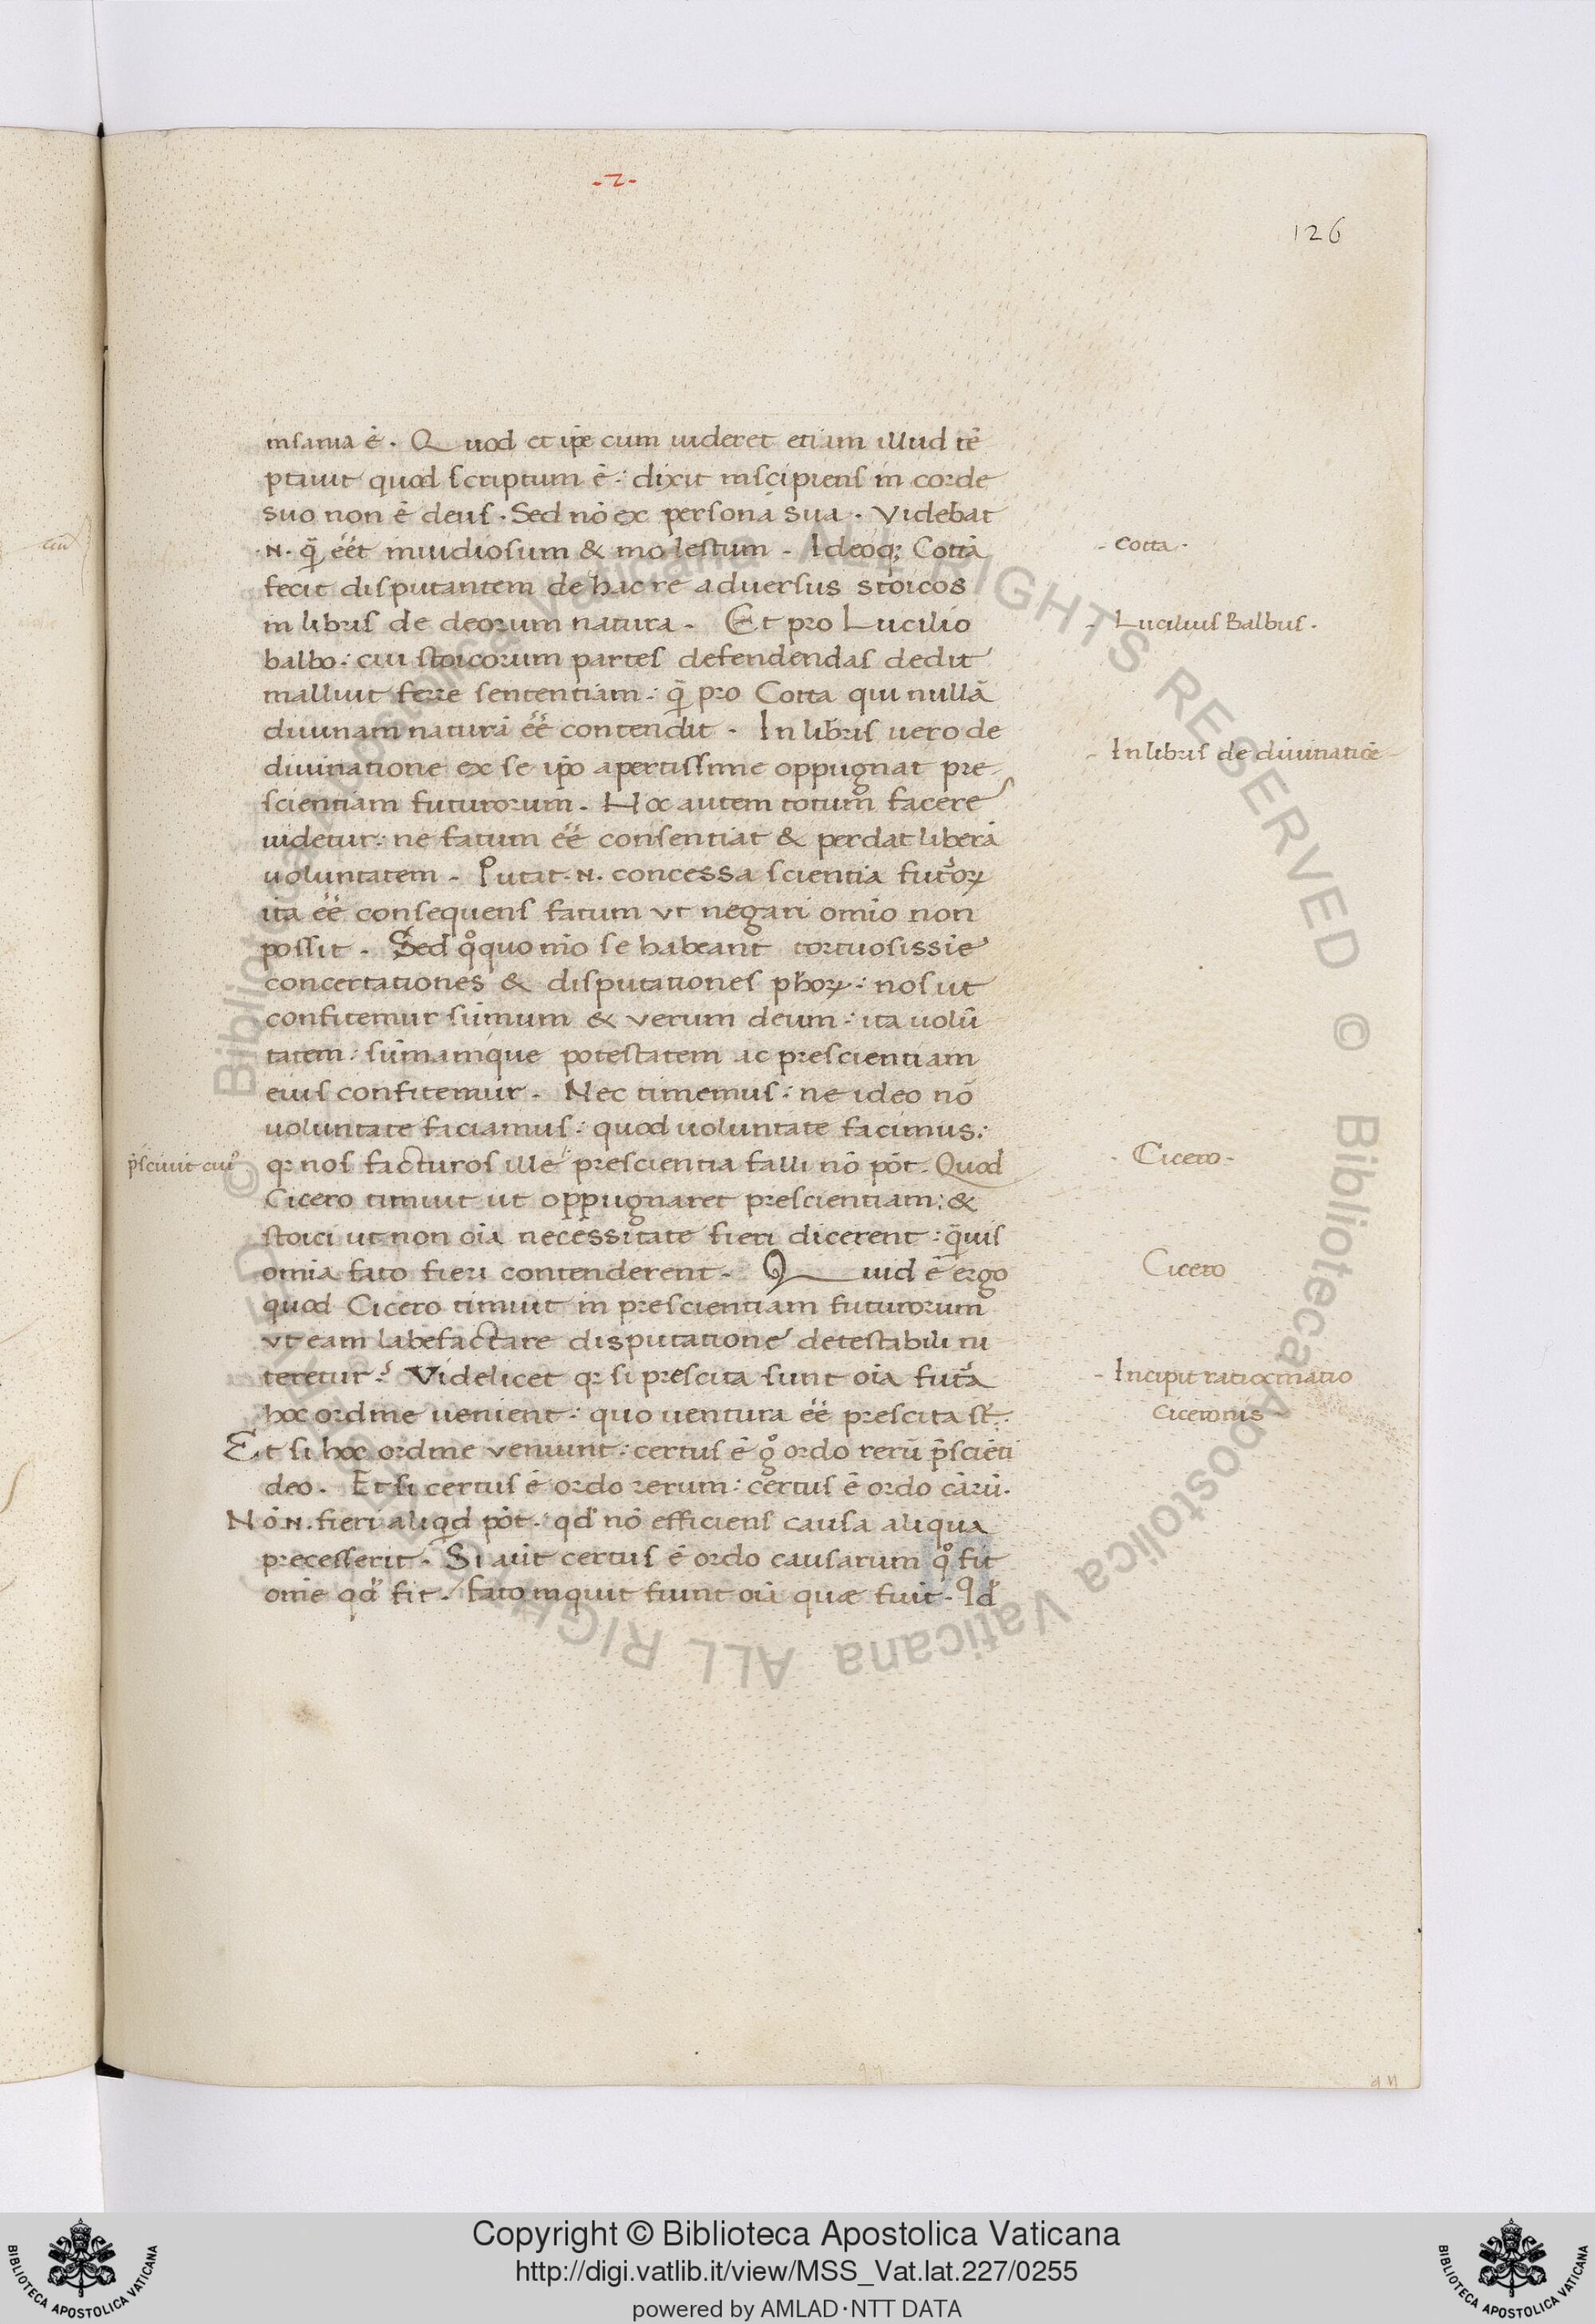 -2-
126
insania ē. Quod et ip̄e cum uideret etiam illud tē
ptauit quod scriptum ē: dixit inscipiens in corde
suo non ē deus. Sed nō ex persona sua. Videbat
.N. q̄ȝ ēēt inuidiosum & molestum. Ideoq; Cottā
fecit disputantem de hac re aduersus stoicos
in libris de deorum natura. Et pro Lucilio
balbo: cui stoicorum partes defendendas dedit
malluit ferre sententiam: q̄ pro Cotta qui nullā
diuinam naturā ēē contendit. In libris uero de
diuinatione ex se ip̄o apertissime oppugnat pre
scientiam futurorum. Hoc autem totum facere
uidetur: ne fatum ēē consentiat & perdat liberā
uoluntatem. Putat .N. concessa scientia futᷣoꝝ
ita ēē consequens fatum vt negari om̄io non
possit. Sed qͦquo mō se habeant tortuosissīe
concertationes & disputationes ph̄oꝝ: nos ut
confitemur sūmum & verum deum: ita uolū
tatem: sūmamque potestatem ac prescientiam
eius confitemur. Nec timemus: ne ideo nō
uoluntate faciamus: quod uoluntate facimus:
qꝛ nos facturos ille prescientia falli nō pōt. Quod
Cicero timuit ut oppugnaret prescientiam: &
stoici ut non oīa necessitate fieri dicerent: q̄uis
omīa fato fieri contenderent. Quid ē ergo
quod Cicero timuit in prescientiam futurorum
vt eam labefactare disputatione detestabili ni
teretur? Videlicet qꝛ si prescita sunt oīa futᷣa
hoc ordine uenient: quo uentura ēē prescita sт̄:
Et si hoc ordine veniunt: certus ē gͦ ordo rerū p̄sciēti
deo. Et si certus ē ordo rerum: certus ē ordo cārū.
Nō .N. fieri aliqd pōt: qd̄ nō efficiens causa aliqua
precesserit. Si aūt certus ē ordo causarum qͦ fit
om̄e qd̄ fit. fato inquit fiunt oīa quæ fiūt. Qd̄
p̄sciuit cuiꝰ
- Cotta.
- Lucilius Balbus.
- In libris de diuinatiōe
- Cicero -
Cicero
- Incipit ratiocinatio
Ciceronis -
Copyright © Biblioteca Apostolica Vaticana
http://digi.vatlib.it/view/MSS_Vat.lat.227/0255
powered by AMLAD·NTT DATA
BIBLIOTECA APOSTOLICA VATICANA
BIBLIOTECA APOSTOLICA VATICANA